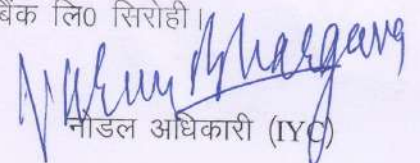 बैंक लि0 सिरोही।
Varun Bhargava
नोडल अधिकारी (IYC)